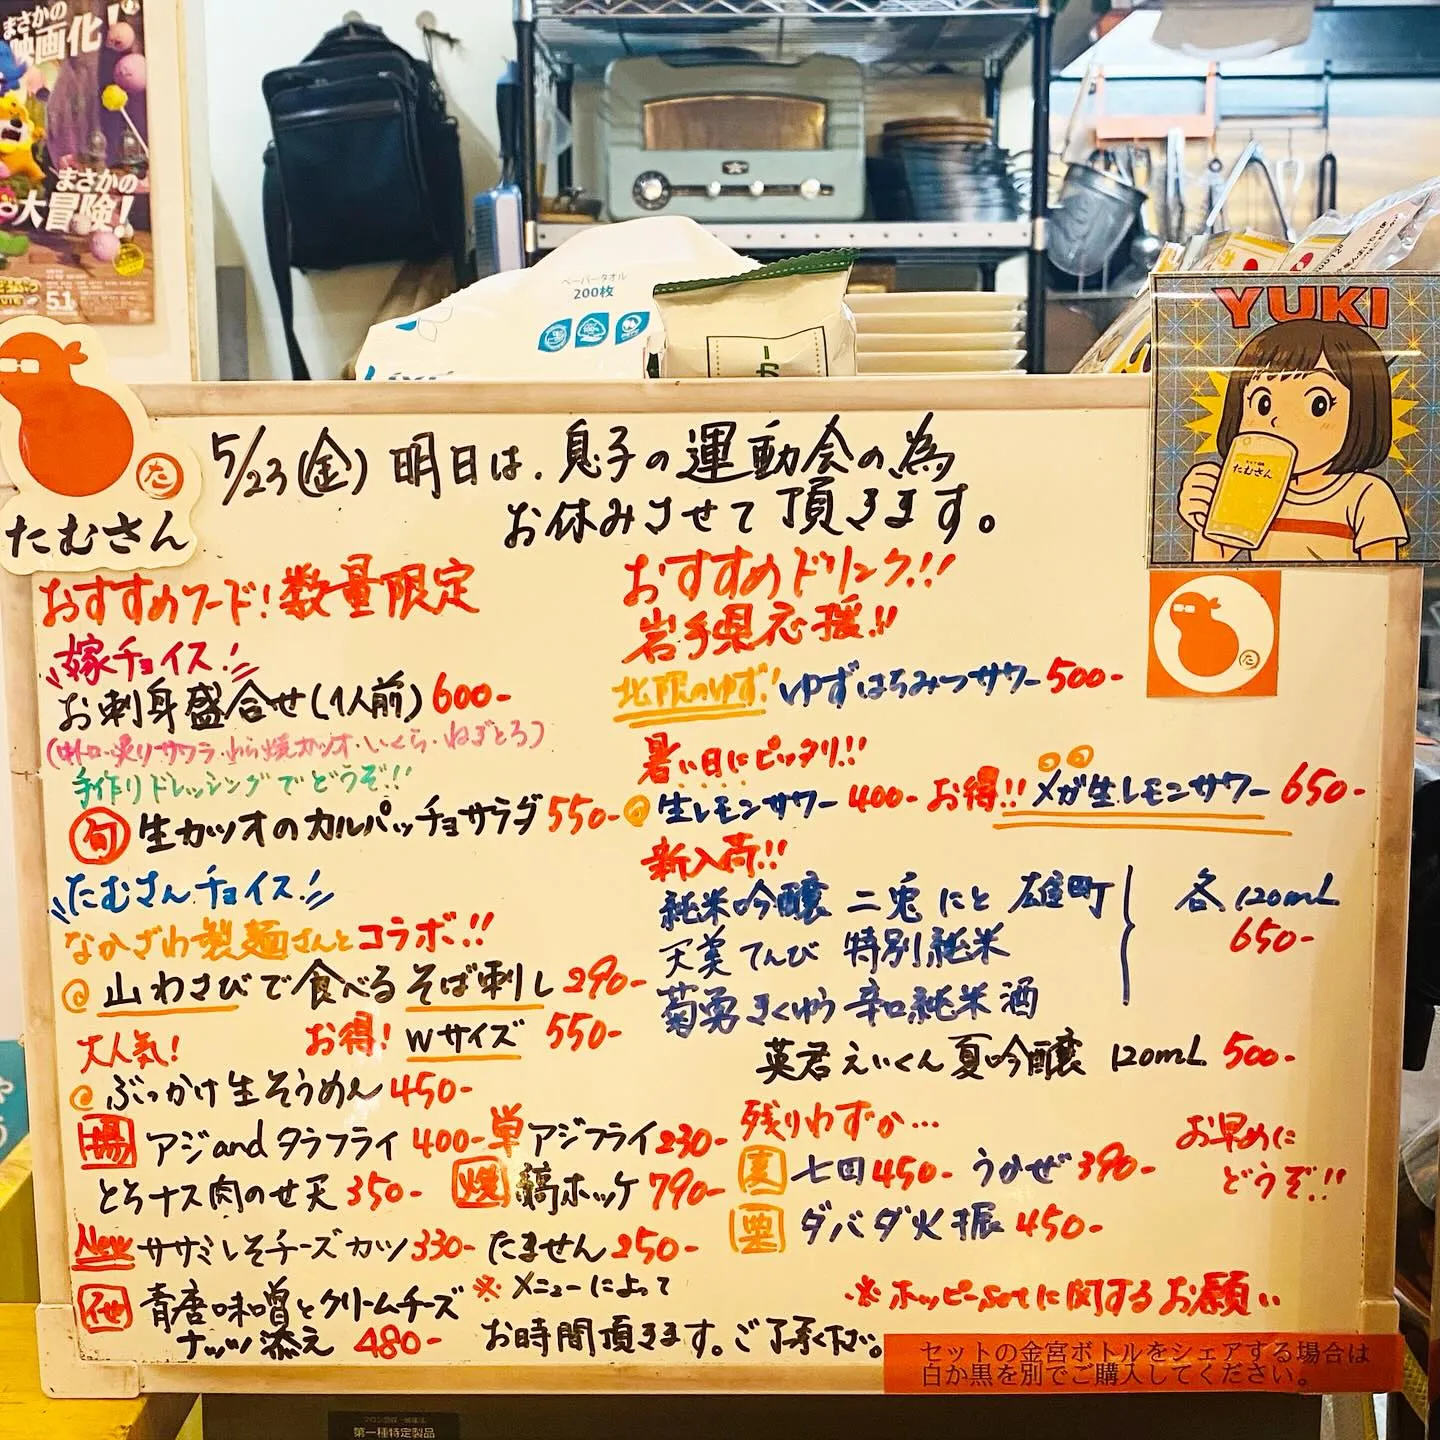 まさかの
映画化!
まさかの
大冒険!
ペーパータオル
200枚
YUKI
たむさん
た
たむさん
5/23(金) 明日は、息子の運動会の為
お休みさせて頂きます。
おすすめフード!数量限定
嫁チョイス!
お刺身盛合せ(1人前) 600-
(中トロ・炙りサワラ・わら焼カツオ・いくら・ねぎとろ)
手作りドレッシングでどうぞ!!
旬 生カツオのカルパッチョサラダ 550-
たむさんチョイス!
なかざわ製麺さんとコラボ!!
山わさびで食べるそば刺し 290-
大人気! お得! Wサイズ 550-
ぶっかけ生そうめん 450-
揚 アジandタラフライ 400- 単 アジフライ 230-
とろナス肉のせ天 350- 焼 縞ホッケ 790-
New ササミしそチーズカツ 330- たません 250-
他 青唐味噌とクリームチーズ
ナッツ添え 480-
※メニューによって
お時間頂きます。ご了承ください。
おすすめドリンク!!
岩手県応援!!
北限のゆず! ゆずはちみつサワー 500-
暑い日にピッタリ!!
生レモンサワー 400- お得!! メガ生レモンサワー 650-
新入荷!!
純米吟醸 二兎 にと 雄町
天美 てんび 特別純米
菊勇 きくゆう 辛口純米酒
各120mL
650-
英君 えいくん 夏吟醸 120mL 500-
残りわずか…
麦 七田 450- うかぜ 390-
栗 ダバダ火振 450-
お早めに
どうぞ!!
※ホッピーsetに関するお願い
セットの金宮ボトルをシェアする場合は
白か黒を別でご購入してください。
第一種特定製品